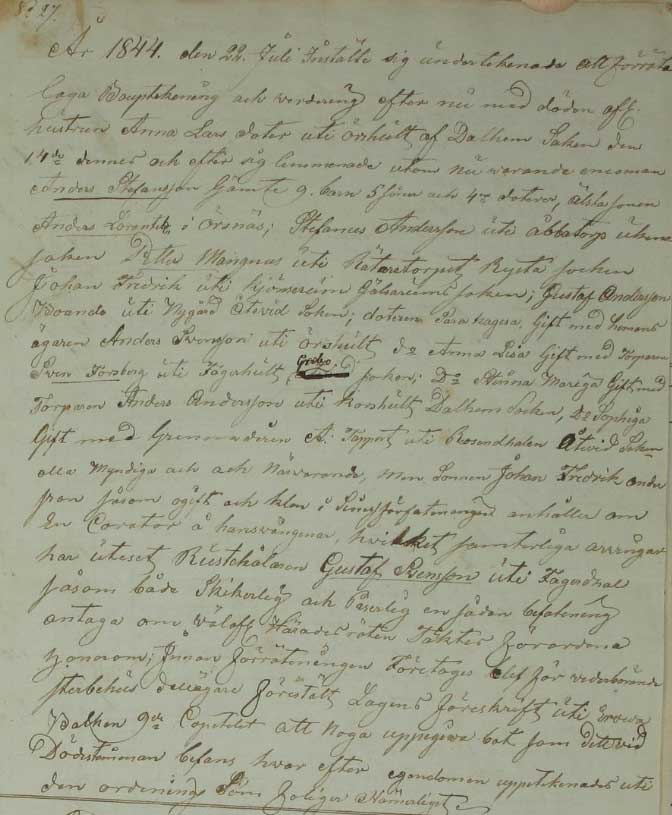 År 1844. den 22. Juli Instälte sig undertekenade att förräta
laga Bouptekening och verdering efter nu med döden afl:
hustrun Anna Lars doter uti örshult af Dalhem Soken den
14de dennes och efter sig lemmenade utom nu warande encoman
Anders Stefansson Jämte 9. barn 5 söner och 4ra doterer,
Anders Lorentz i örsnäs; Stefanus Andersson uti åbbatorp
soken Petter Mangnus uti Rätaretorpet Ryta soken
Johan Fredrik uti soken; Gustaf Andersson
Boande uti Nygård Åtvid Soken; doteren Sara Gift med hemans
ägaren Anders Svensson uti Örshult do Anna Lisa Gift med Torparen
Sven Forsberg uti Fägerhult Grebo soken; Do Stinna Marega Gift med
Torparen Anders Andersson uti Korshult Dalhem Socken, Do Sophiga
Gift med Grennaderen A: Tappert uti Rosendhalen Åtvid Soken
alla Myndiga och och Närvarande, Men Sonnen Johan Fredrik
son såsom ogift och klen i anhåller om
En Corator å hansvängenar, hvilket samterliga arvingar
har utset Rusthålaren Gustaf Svensson uti Fägerdhal
såsom både Skikerlig och Paserlig en sådan befatening
antaga om wälofl Häradesräten Täktes förordena
honom; Innan förräteningen Företages blef för vederbörande
sterbehus dellägare Föristält Lagens föreskrift uti Ervda
Balken 9de Capetlet att noga uppegiva bot som dett vid
Dödsteman befans hvar efter egendomen uppetekenades uti
den ordening Som följer Nämerligen